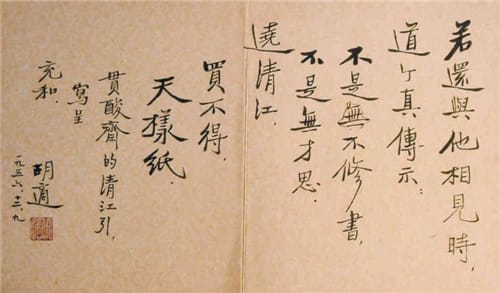 若還與他相見時，
道个真傳示：
不是無不修書，
不是無才思，
遶清江，
買不得，
天樣紙．
貫酸齋的清江引，
寫呈
充和．
胡適
一九五六，十二，九